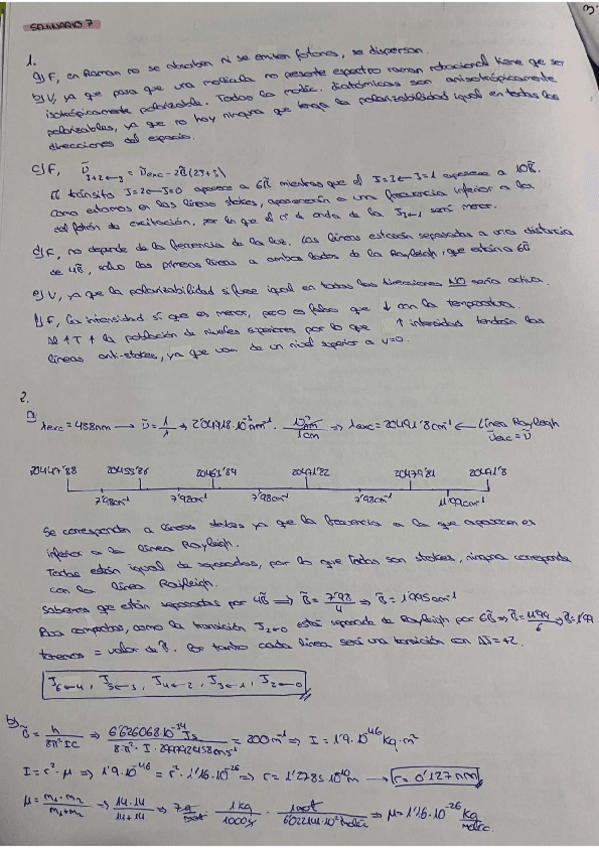 3.
SEMINARIO 7
1.
a) F, en Raman no se absorben ni se emiten fotones, se dispersan.
b) V, ya que para que una molécula no presente espectro raman rotacional tiene que ser
isotrópicamente polarizable. Todas las moléc. diatómicas son anisotrópicamente
polarizables, ya que no hay ninguna que tenga la polarizabilidad igual en todas las
direcciones del espacio.
c) F, ν̃ J+2←J = ν̃exc - 2B̃(2J+3)
El tránsito J=2←J=0 aparece a 6B̃ mientras que el J=3←J=1 aparece a 10B̃.
como estamos en las líneas stokes, aparecerán a una frecuencia inferior a la
del fotón de excitación, por lo que el nº de onda de la J3←1 será menor.
d) F, no depende de la frecuencia de la luz. Las líneas estarán separadas a una distancia
de 4B̃, salvo las primeras líneas a ambos lados de la Rayleigh, que están a 6B̃
e) V, ya que la polarizabilidad si fuese igual en todas las direcciones NO sería activa.
f) F, la intensidad sí que es menor, pero es falso que ↓ con la temperatura.
Al ↑T ↑ la población de niveles superiores por lo que ↑ intensidad tendrán las
líneas anti-stokes, ya que van de un nivel superior a v=0.
2.
a) λexc = 488nm → ν̃ = 1/λ → 2'04918·10⁻³ nm⁻¹ · 10⁷nm/1cm ⇒ λexc = 20491'8cm⁻¹ ← Línea Rayleigh
ν̃exc = ν̃
20447'88 20455'86 20463'84 20471'82 20479'81 20491'8
7'98cm⁻¹ 7'98cm⁻¹ 7'98cm⁻¹ 7'98cm⁻¹ 11'99cm⁻¹
Se corresponden a líneas stokes ya que la frecuencia a la que aparecen es
inferior a la línea Rayleigh.
Todas están igual de separadas, por lo que todas son stokes, ninguna corresponde
con la línea Rayleigh.
Sabemos que están separadas por 4B̃ ⇒ B̃ = 7'98/4 ⇒ B̃ = 1'995cm⁻¹
Para comprobar, como la transición J2←0 está separada de Rayleigh por 6B̃ ⇒ B̃ = 11'99/6 ⇒ B̃ = 1'99
tenemos = valor de B̃. Por tanto cada línea será una transición con ΔJ=+2.
J6←4, J5←3, J4←2, J3←1, J2←0
b) B̃ = h/8π²IC ⇒ 6'626068·10⁻³⁴ Js/8·π²·I·299792458ms⁻¹ = 200m⁻¹ ⇒ I = 1'9·10⁻⁴⁶ Kg·m²
I = r²·μ ⇒ 1'9·10⁻⁴⁶ = r²·1'16·10⁻²⁶ ⇒ r = 1'2785·10⁻¹⁰m → r = 0'127nm
μ = m₁·m₂/m₁+m₂ ⇒ 14·14/14+14 ⇒ 7g/mol · 1Kg/1000g · 1mol/6'022141·10²³moléc ⇒ μ = 1'16·10⁻²⁶ Kg/moléc.